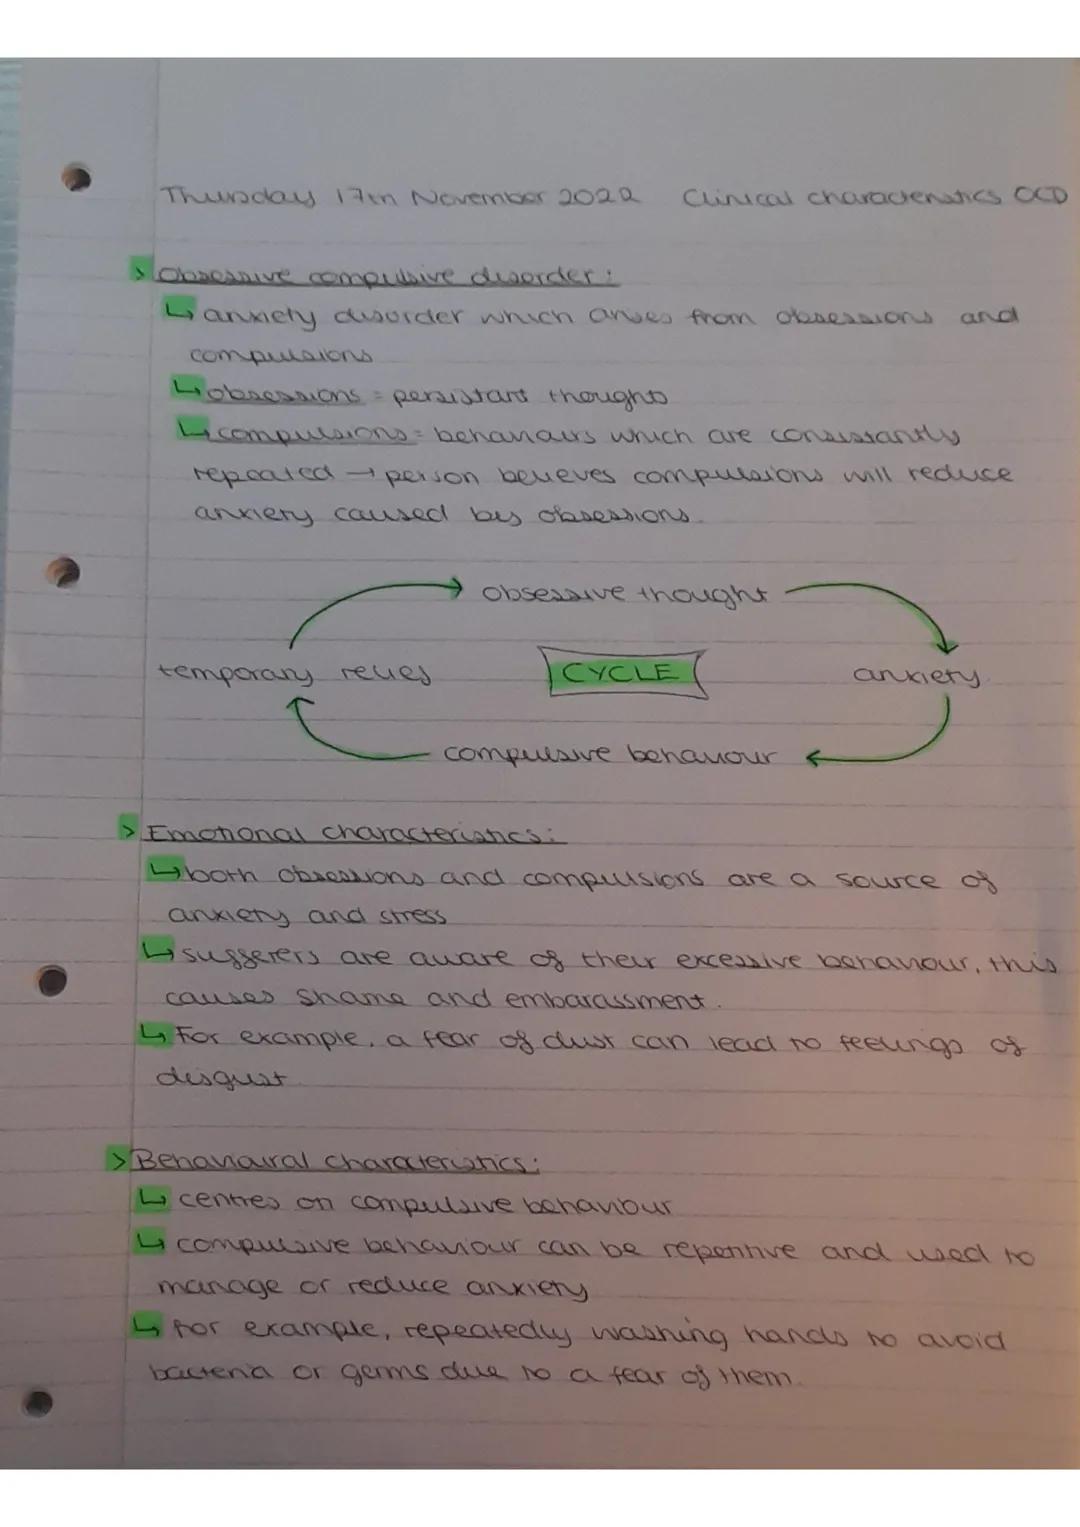 Thursday 17th November 2022 Clinical characteristics OCD
> Obsessive compulsive disorder:
↳ anxiety disorder which arises from obsessions and
compulsions
↳ obsessions = persistant thoughts
↳ compulsions = behaviours which are consistantly
repeated → person believes compulsions will reduce
anxiety caused by obsessions.
obsessive thought
temporary relief
CYCLE
anxiety
compulsive behaviour
> Emotional characteristics:
↳ both obsessions and compulsions are a source of
anxiety and stress
↳ sufferers are aware of their excessive behaviour, this
causes shame and embarassment.
↳ For example, a fear of dust can lead to feelings of
disgust
> Behavioural characteristics:
↳ centres on compulsive behaviour
↳ compulsive behaviour can be repetitive and used to
manage or reduce anxiety
↳ For example, repeatedly washing hands to avoid
bacteria or germs due to a fear of them.